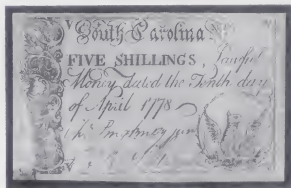 South Carolina.
FIVE SHILLINGS, Lawful
Money, dated the Tenth day
of April 1778